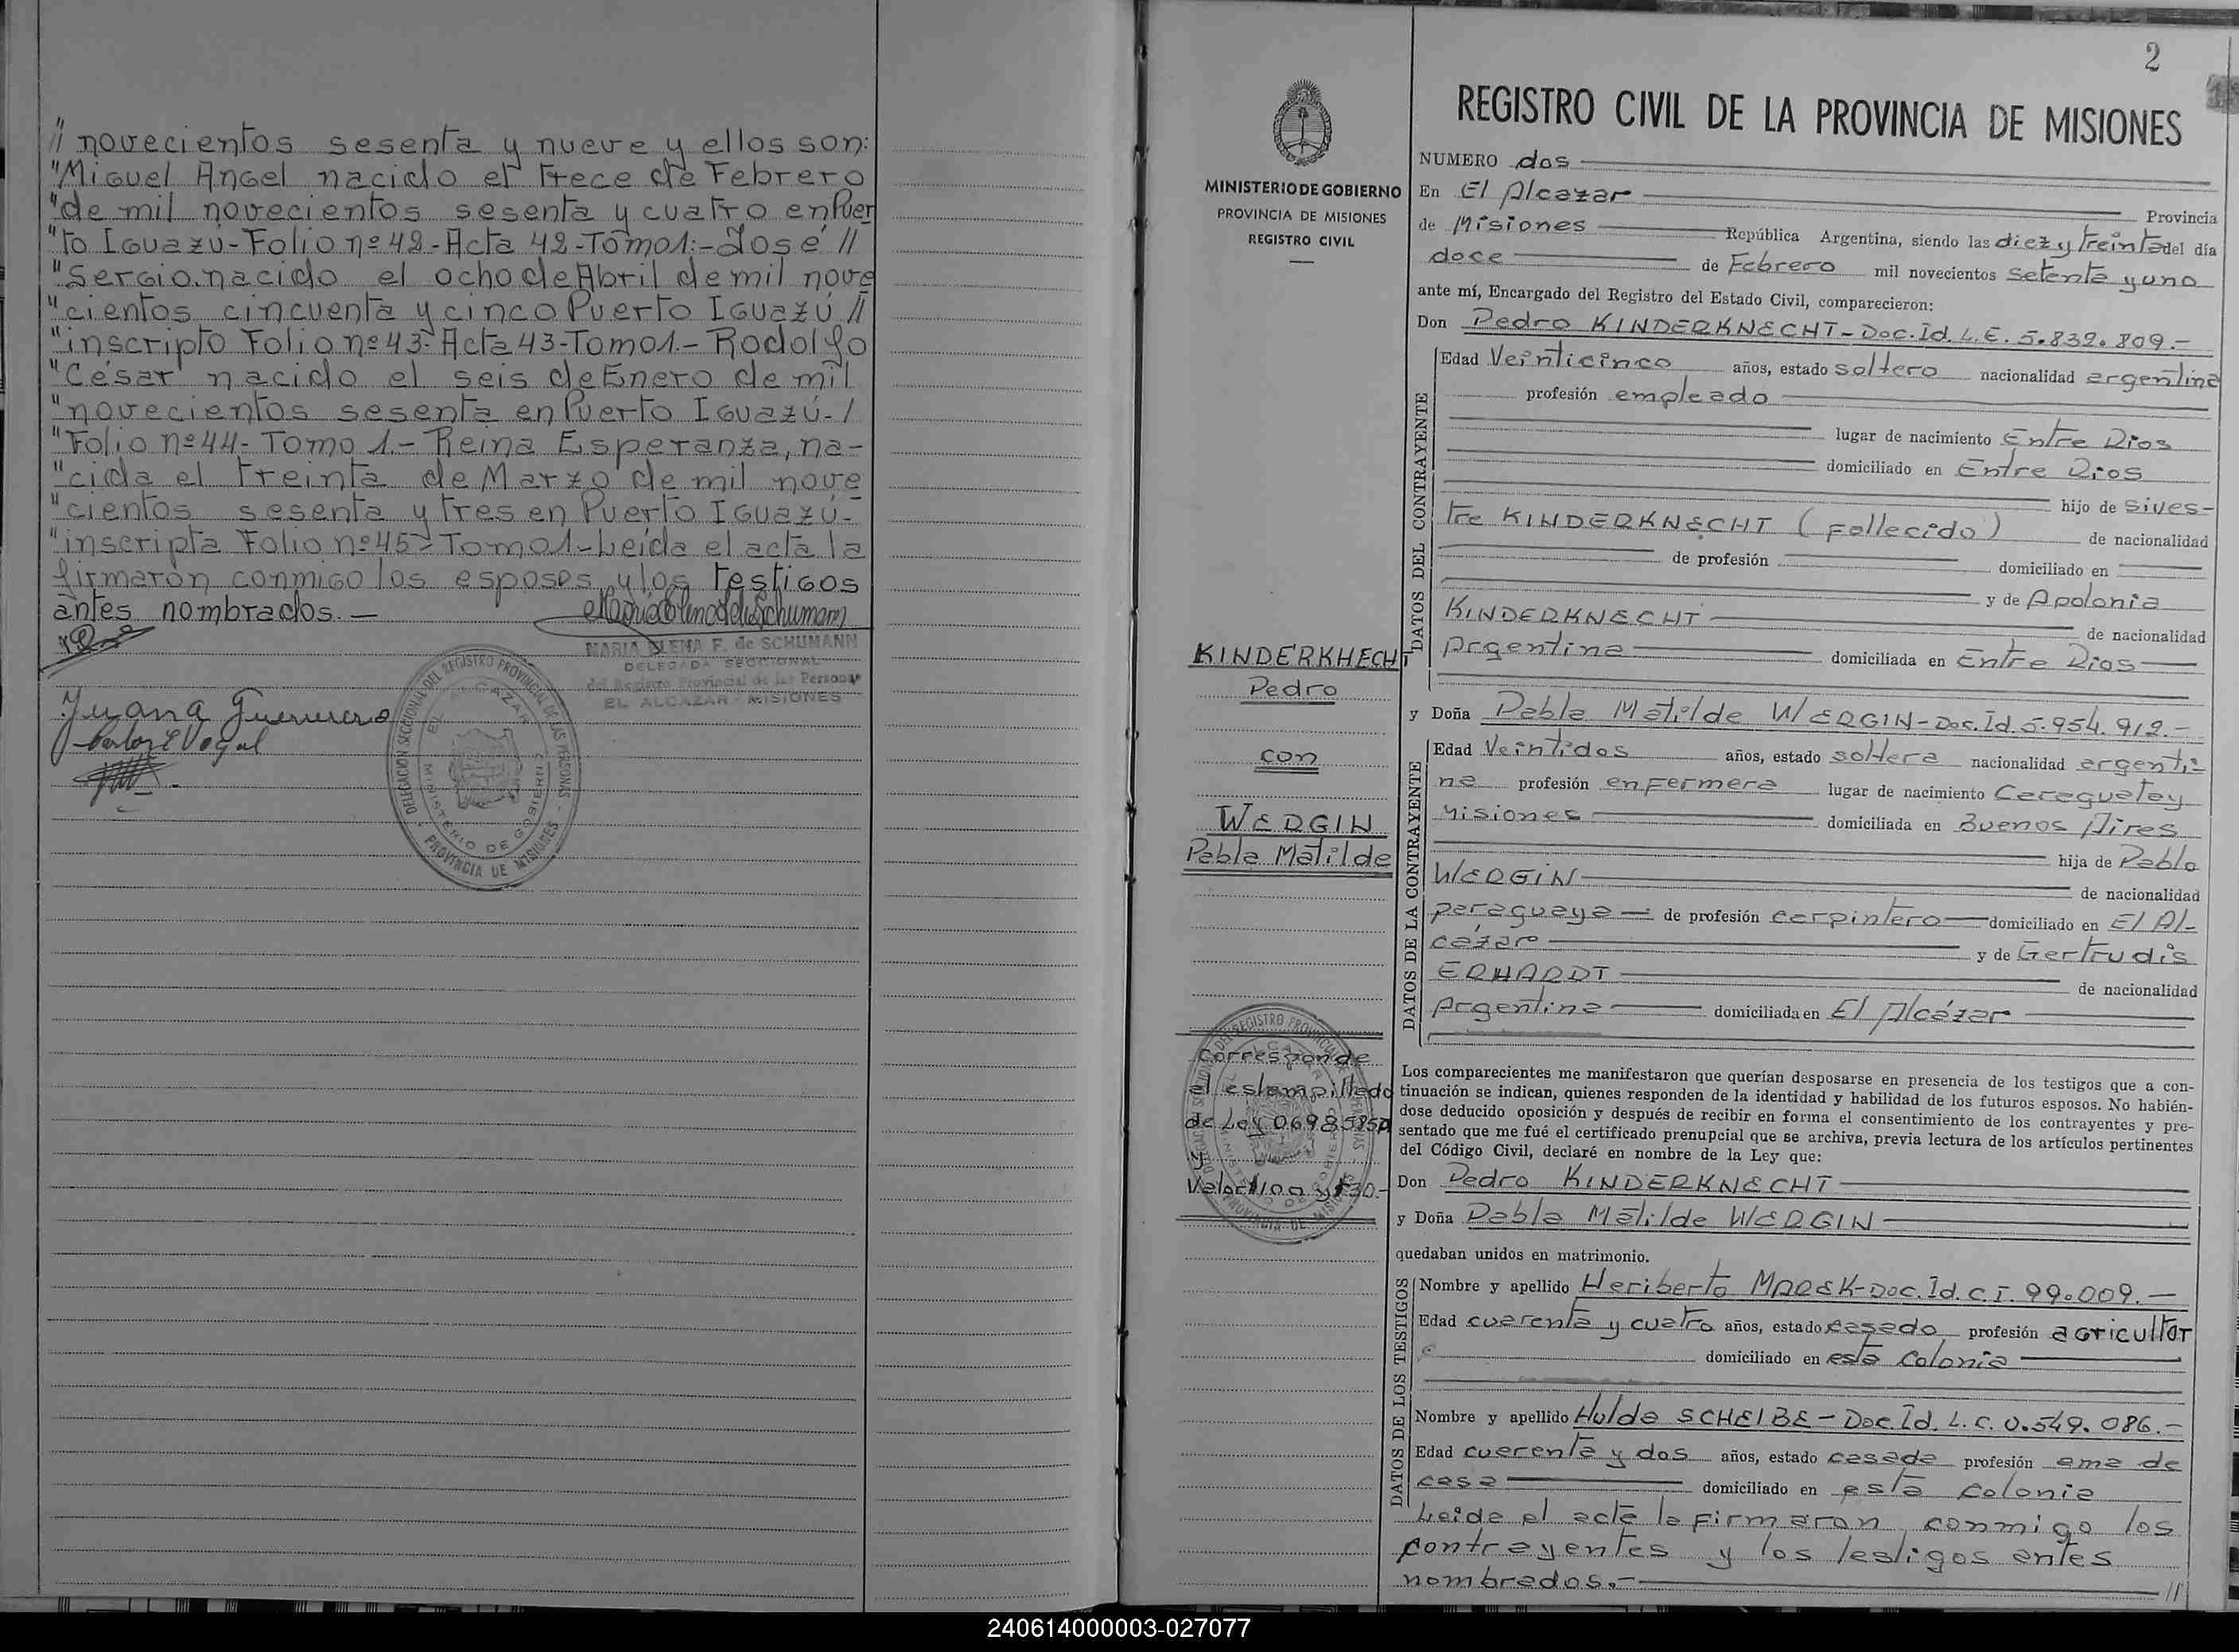 // novecientos sesenta y nueve y ellos son:
"Miguel Angel nacido el trece de Febrero
"de mil novecientos sesenta y cuatro en Puer
"to Iguazú-Folio nº 42-Acta 42-Tomo1:-José //
"Sergio.nacido el ocho de Abril de mil nove
"cientos cincuenta y cinco Puerto Iguazú //
"inscripto Folio nº 43-Acta 43-Tomo1.- Rodolfo
"César nacido el seis de Enero de mil
"novecientos sesenta en Puerto Iguazú-/
"Folio nº 44- Tomo 1.- Reina Esperanza, na-
"cida el treinta de Marzo de mil nove
"cientos sesenta y tres en Puerto Iguazú-
"inscripta Folio nº 45-Tomo1-Leída el acta la
firmaron conmigo los esposos y los testigos
antes nombrados.-
MARIA ELENA F. de SCHUMANN
DELEGADA SECCIONAL
del Registro Provincial de las Personas
EL ALCAZAR - MISIONES
Juana Guerrero
DELEGACION SECCIONAL DEL REGISTRO PROVINCIAL DE LAS PERSONAS
EL ALCAZAR
MINISTERIO DE GOBIERNO
PROVINCIA DE MISIONES
2
MINISTERIO DE GOBIERNO
PROVINCIA DE MISIONES
REGISTRO CIVIL
KINDERKHECHT
Pedro
con
WERGIN
Pabla Matilde
Corresponde
el estampillado
de Ley 0698585A
y
REGISTRO CIVIL DE LA PROVINCIA DE MISIONES
NUMERO dos
En El Alcazar Provincia
de Misiones República Argentina, siendo las diez y treinta del día
doce de Febrero mil novecientos setenta y uno
ante mí, Encargado del Registro del Estado Civil, comparecieron:
Don Pedro KINDERKNECHT-Doc.Id.L.E. 5.832.809.-
DATOS DEL CONTRAYENTE
Edad Veinticinco años, estado soltero nacionalidad argentina
profesión empleado
lugar de nacimiento Entre Rios
domiciliado en Entre Rios
hijo de Silves-
tre KINDERKNECHT (Fallecido) de nacionalidad
de profesión domiciliado en
y de Apolonia
KINDERKNECHT de nacionalidad
Argentina domiciliada en Entre Rios
y Doña Pabla Matilde WERGIN-Doc.Id.5.954.912.-
DATOS DE LA CONTRAYENTE
Edad Veintidos años, estado soltera nacionalidad argenti-
na profesión enfermera lugar de nacimiento Caraguatay
Misiones domiciliada en Buenos Aires
hija de Pablo
WERGIN de nacionalidad
paraguaya de profesión carpintero domiciliado en El Al-
cázar y de Gertrudis
ERHARDT de nacionalidad
Argentina domiciliada en El Alcázar
Los comparecientes me manifestaron que querían desposarse en presencia de los testigos que a con-
tinuación se indican, quienes responden de la identidad y habilidad de los futuros esposos. No habién-
dose deducido oposición y después de recibir en forma el consentimiento de los contrayentes y pre-
sentado que me fué el certificado prenupcial que se archiva, previa lectura de los artículos pertinentes
del Código Civil, declaré en nombre de la Ley que:
Don Pedro KINDERKNECHT
y Doña Pabla Matilde WERGIN
quedaban unidos en matrimonio.
DATOS DE LOS TESTIGOS
Nombre y apellido Heriberto MAREK-Doc.Id.C.I. 99.009.-
Edad cuarenta y cuatro años, estado casado profesión agricultor
domiciliado en esta Colonia
Nombre y apellido Hulda SCHEIBE-Doc.Id. L.C. 0.549.086.-
Edad cuarenta y dos años, estado casada profesión ama de
casa domiciliado en esta Colonia
Leida el acta la firmaron conmigo los
contrayentes y los testigos antes
nombrados.- //
240614000003-027077